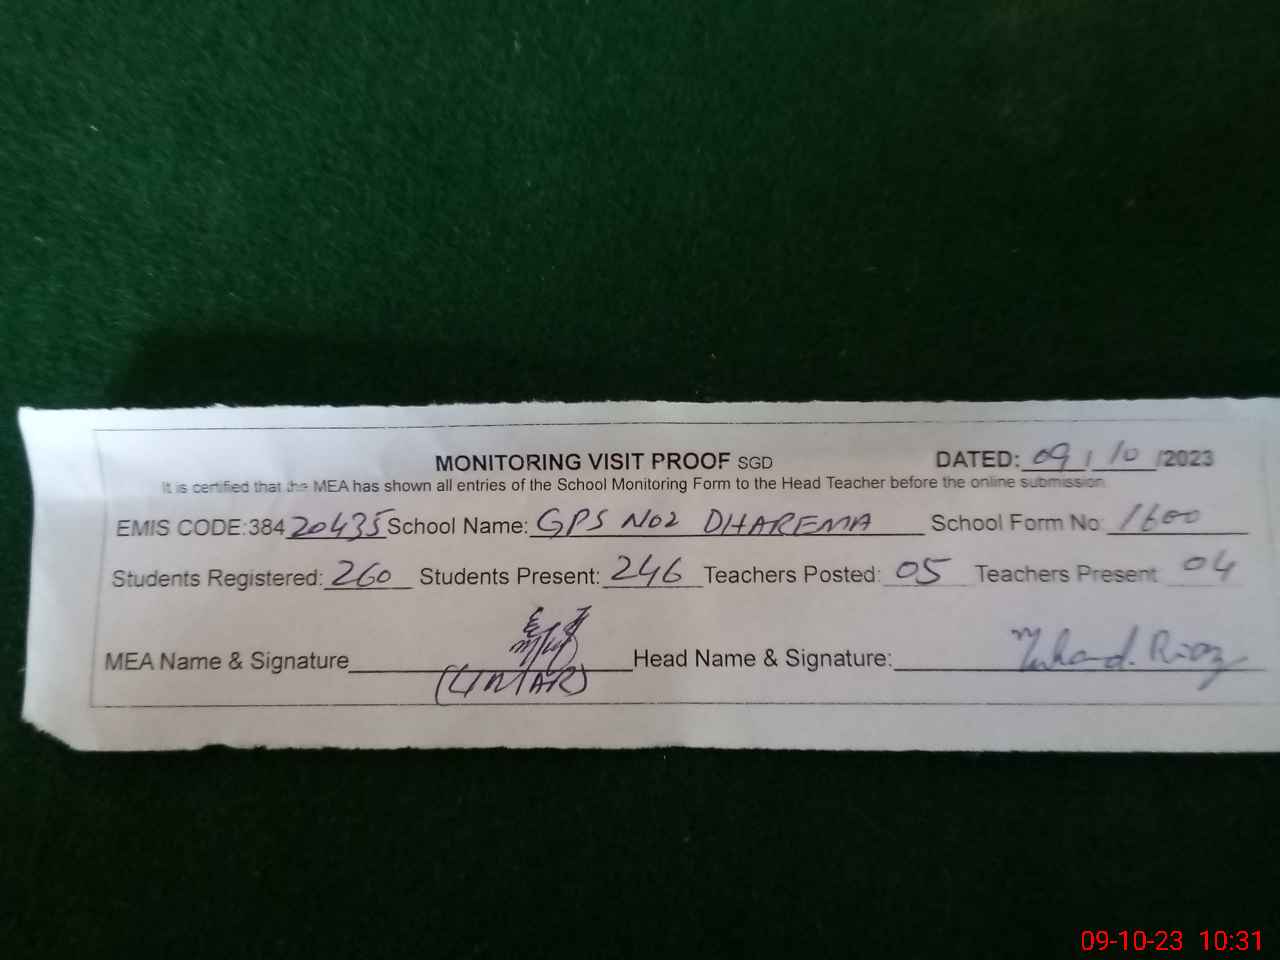 MONITORING VISIT PROOF SGD DATED: 09 / 10 /2023
It is certified that the MEA has shown all entries of the School Monitoring Form to the Head Teacher before the online submission
EMIS CODE:38420435 School Name: GPS No2 DHAREMA School Form No: 1600
Students Registered: 260 Students Present: 246 Teachers Posted: 05 Teachers Present 04
MEA Name & Signature Head Name & Signature:
(UMAR)
09-10-23 10:31